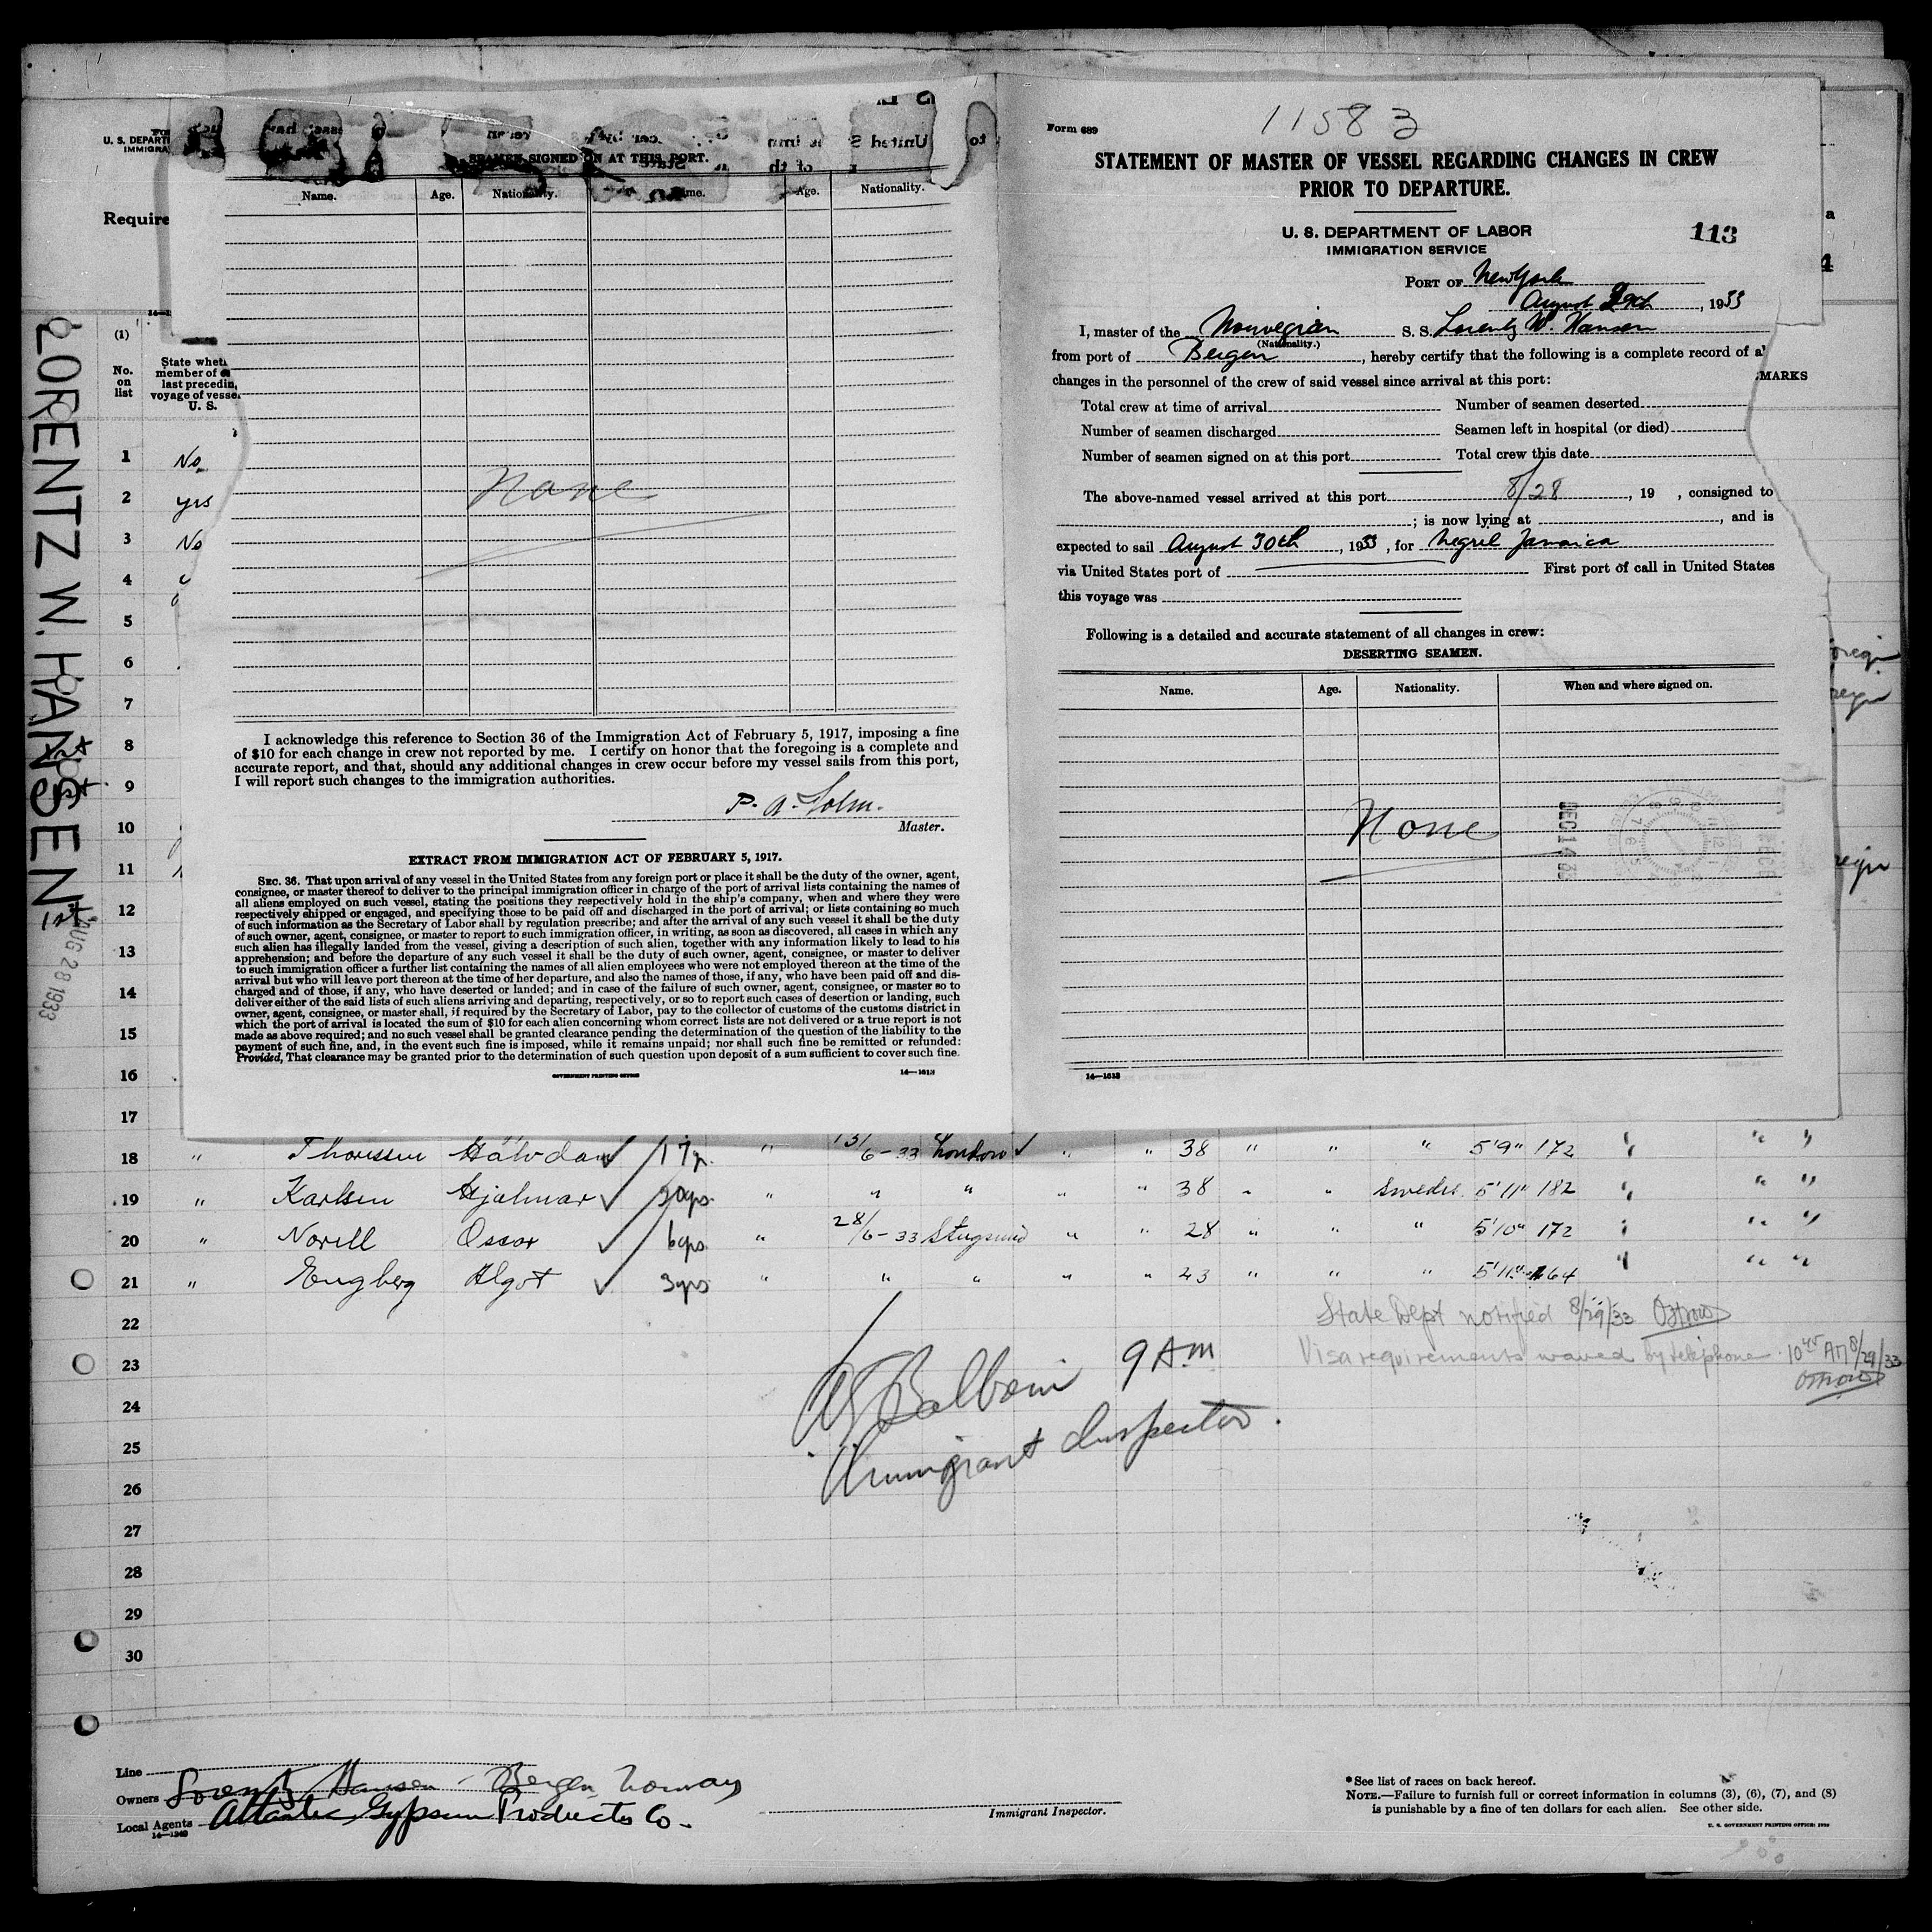 LORENTZ W. HANSEN
AUG 28 1933
U. S. DEPART
IMMIGRA
Require
(1)
No.
on
list
State wheth
member of
last precedin
voyage of vesse
U. S.
1 No
2 yrs
3 No
4
5
6
7
8
9
10
11
12
13
14
15
16
17
SEAMEN SIGNED ON AT THIS PORT.
Name. Age. Nationality. Name. Age. Nationality.
None
I acknowledge this reference to Section 36 of the Immigration Act of February 5, 1917, imposing a fine
of $10 for each change in crew not reported by me. I certify on honor that the foregoing is a complete and
accurate report, and that, should any additional changes in crew occur before my vessel sails from this port,
I will report such changes to the immigration authorities.
P. A.
Master.
EXTRACT FROM IMMIGRATION ACT OF FEBRUARY 5, 1917.
SEC. 36. That upon arrival of any vessel in the United States from any foreign port or place it shall be the duty of the owner, agent,
consignee, or master thereof to deliver to the principal immigration officer in charge of the port of arrival lists containing the names of
all aliens employed on such vessel, stating the positions they respectively hold in the ship's company, when and where they were
respectively shipped or engaged, and specifying those to be paid off and discharged in the port of arrival; or lists containing so much
of such information as the Secretary of Labor shall by regulation prescribe; and after the arrival of any such vessel it shall be the duty
of such owner, agent, consignee, or master to report to such immigration officer, in writing, as soon as discovered, all cases in which any
such alien has illegally landed from the vessel, giving a description of such alien, together with any information likely to lead to his
apprehension; and before the departure of any such vessel it shall be the duty of such owner, agent, consignee, or master to deliver
to such immigration officer a further list containing the names of all alien employees who were not employed thereon at the time of the
arrival but who will leave port thereon at the time of her departure, and also the names of those, if any, who have been paid off and dis-
charged and of those, if any, who have deserted or landed; and in case of the failure of such owner, agent, consignee, or master so to
deliver either of the said lists of such aliens arriving and departing, respectively, or so to report such cases of desertion or landing, such
owner, agent, consignee, or master shall, if required by the Secretary of Labor, pay to the collector of customs of the customs district in
which the port of arrival is located the sum of $10 for each alien concerning whom correct lists are not delivered or a true report is not
made as above required; and no such vessel shall be granted clearance pending the determination of the question of the liability to the
payment of such fine, and, in the event such fine is imposed, while it remains unpaid; nor shall such fine be remitted or refunded:
Provided, That clearance may be granted prior to the determination of such question upon deposit of a sum sufficient to cover such fine.
GOVERNMENT PRINTING OFFICE 14—1613
Form 689
11583
STATEMENT OF MASTER OF VESSEL REGARDING CHANGES IN CREW
PRIOR TO DEPARTURE.
U. S. DEPARTMENT OF LABOR
IMMIGRATION SERVICE
113
PORT OF New York
August 29th, 1933
I, master of the Norwegian S. S. Lorentz W. Hansen
(Nationality.)
from port of Bergen, hereby certify that the following is a complete record of al
changes in the personnel of the crew of said vessel since arrival at this port:
MARKS
Total crew at time of arrival Number of seamen deserted
Number of seamen discharged Seamen left in hospital (or died)
Number of seamen signed on at this port Total crew this date
The above-named vessel arrived at this port 8/28, 19 , consigned to
; is now lying at , and is
expected to sail August 30th, 1933, for Negril Jamaica
via United States port of First port of call in United States
this voyage was
Following is a detailed and accurate statement of all changes in crew:
DESERTING SEAMEN.
Name. Age. Nationality. When and where signed on.
None
14—1613
18 " Thoressen Halvdan 17 yr. " 13/6-33 London " " 38 " " " 5'9" 172 " " "
19 " Karlsen Hjalmar 20 yrs. " " " " " 38 " " Swedis 5'11" 182 " " "
20 " Norell Oscar 6 yrs. " 28/6-33 Stugsund " " 28 " " " 5'10" 172 " " "
21 " Engberg Algot 3 yrs " " " " " 43 " " " 5'11" 164 " " "
22
23
24
25
26
27
28
29
30
State Dept notified 8/29/33 Ostrow
Visa requirements waved by telephone 10 45 AM 8/29/33
Ostrow
Balboni 9 AM
Immigrant Inspector.
Line
Owners Lorentz Hansen - Bergen Norway
Local Agents Atlantic Gypsum Products Co.
Immigrant Inspector.
*See list of races on back hereof.
NOTE.—Failure to furnish full or correct information in columns (3), (6), (7), and (8)
is punishable by a fine of ten dollars for each alien. See other side.